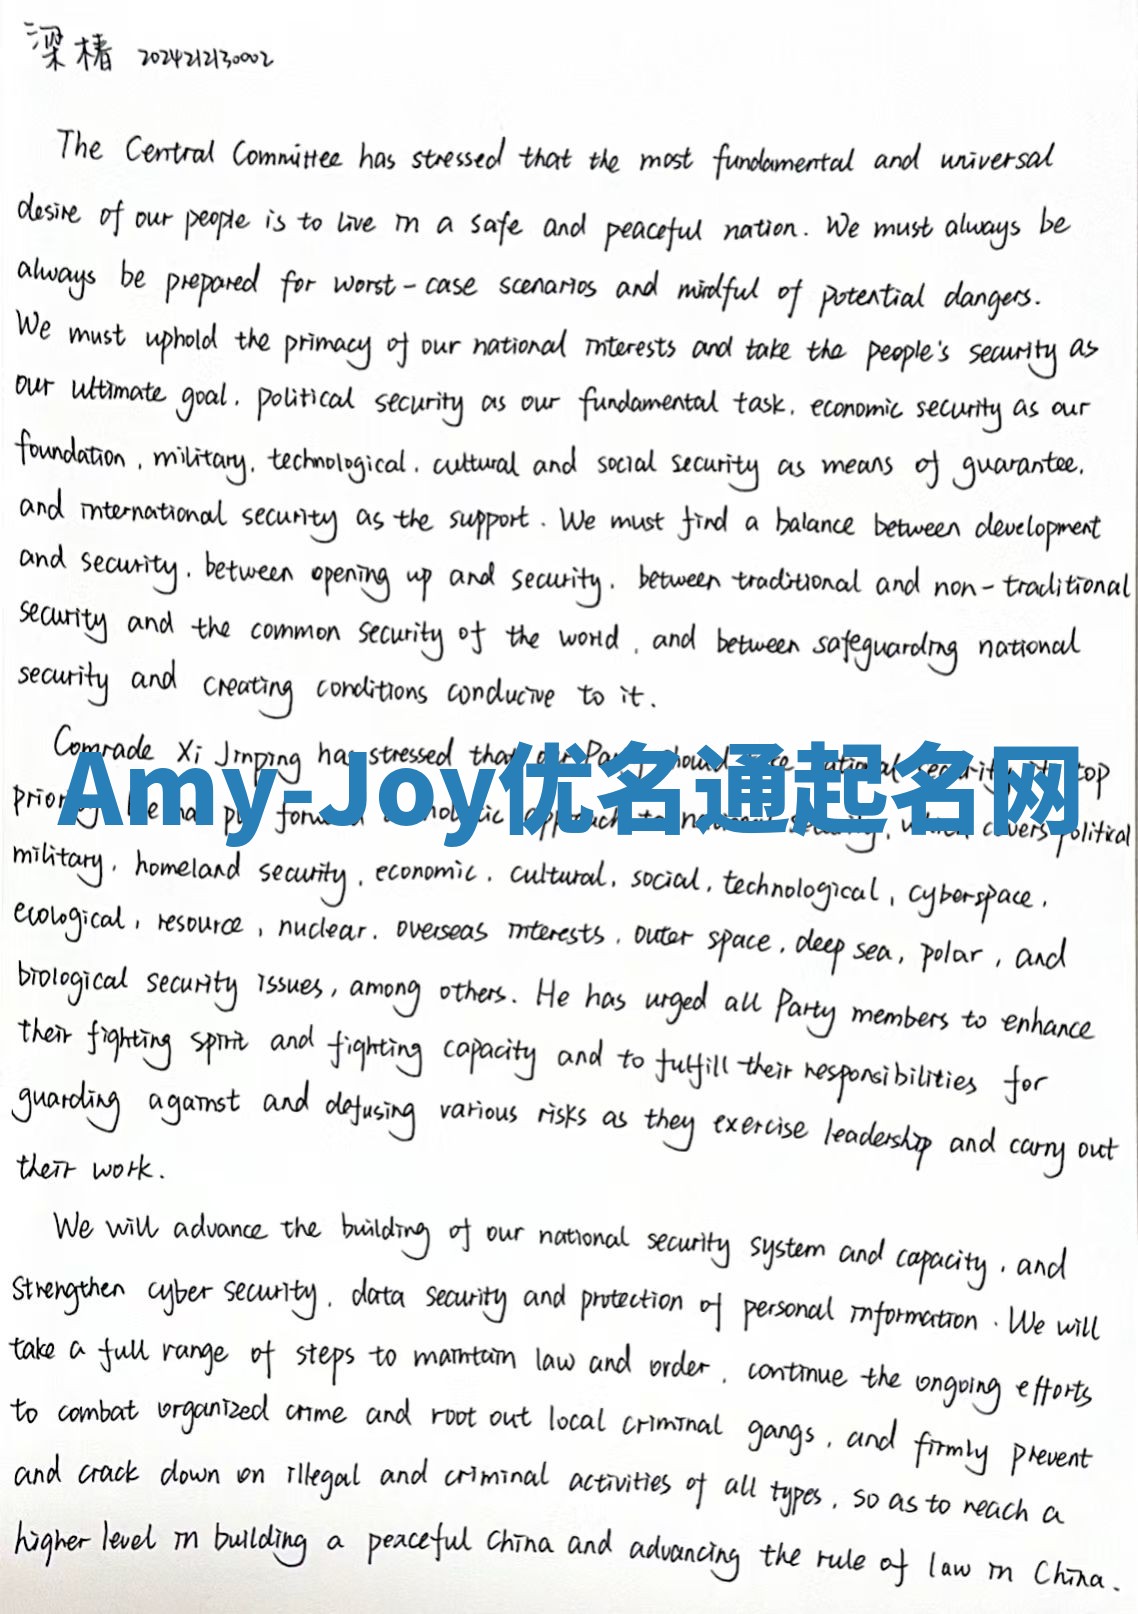 梁椿 2024212130002
The Central Committee has stressed that the most fundamental and universal
desire of our people is to live in a safe and peaceful nation. We must always be
always be prepared for worst-case scenarios and mindful of potential dangers.
We must uphold the primacy of our national interests and take the people's security as
our ultimate goal, political security as our fundamental task, economic security as our
foundation, military, technological, cultural and social security as means of guarantee,
and international security as the support. We must find a balance between development
and security, between opening up and security, between traditional and non-traditional
security and the common security of the world, and between safeguarding national
security and creating conditions conducive to it.
Comrade Xi Jinping has stressed that our Party should national security its top
Amy-Joy优名通起名网
He has put forward a holistic approach to national security, which covers political
military, homeland security, economic, cultural, social, technological, cyberspace,
ecological, resource, nuclear, overseas interests, outer space, deep sea, polar, and
biological security issues, among others. He has urged all Party members to enhance
their fighting spirit and fighting capacity and to fulfill their responsibilities for
guarding against and defusing various risks as they exercise leadership and carry out
their work.
We will advance the building of our national security system and capacity, and
strengthen cyber security, data security and protection of personal information. We will
take a full range of steps to maintain law and order, continue the ongoing efforts
to combat organized crime and root out local criminal gangs, and firmly prevent
and crack down on illegal and criminal activities of all types, so as to reach a
higher level in building a peaceful China and advancing the rule of law in China.